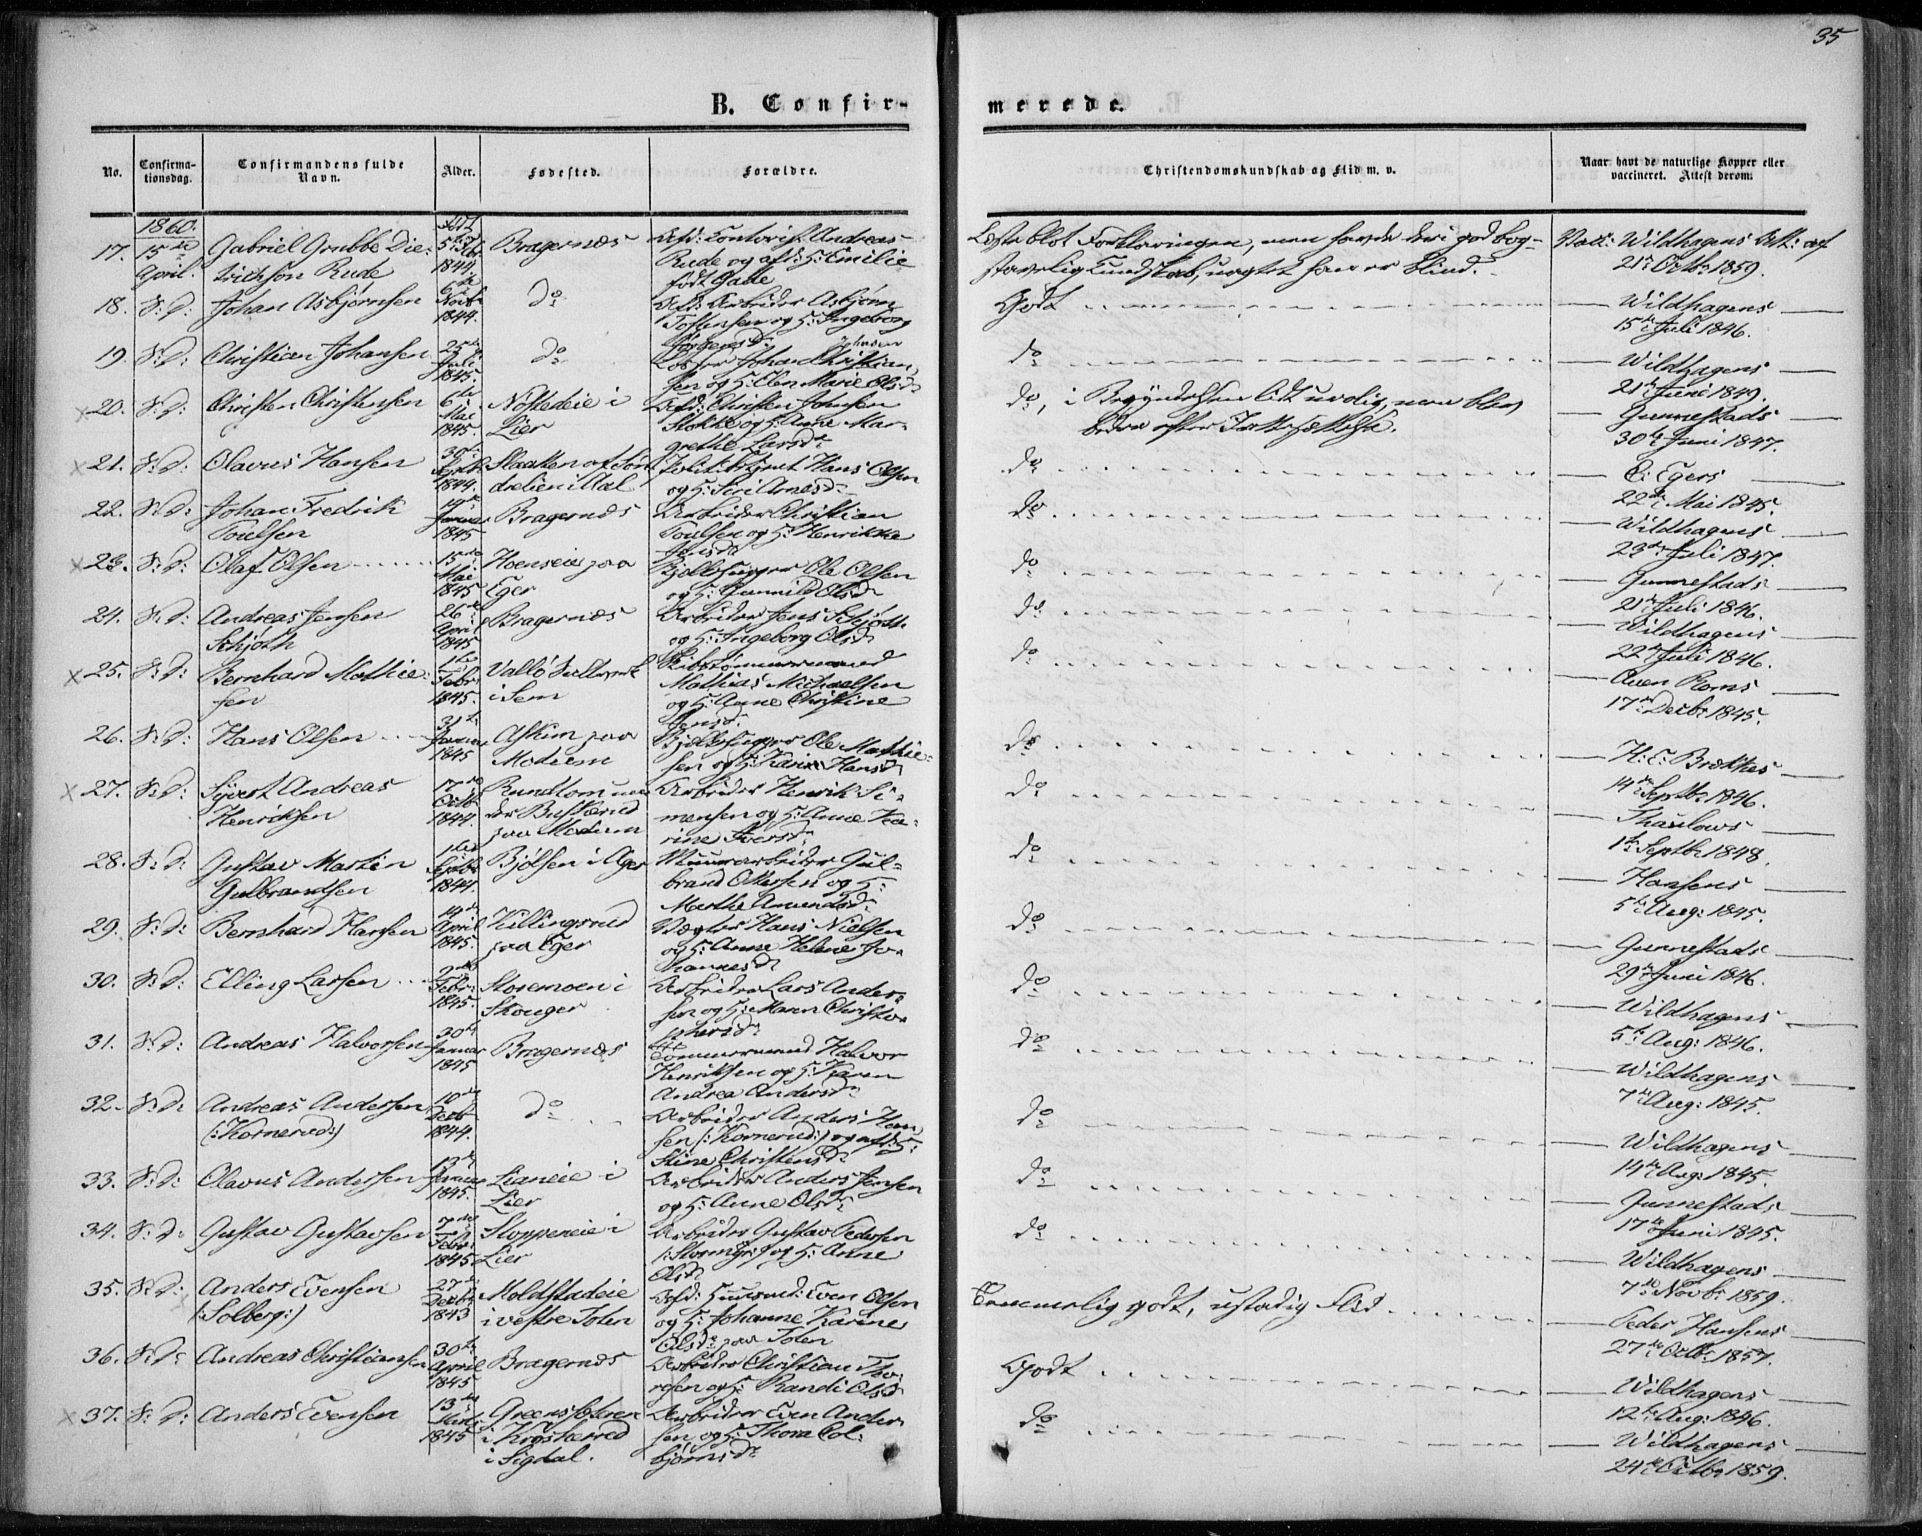 35
B. Confir-
merede.
No.
Confirma-
tionsdag.
Confirmandens fulde
Navn.
Alder.
Fødested.
Forældre.
Christendomskundskab og Flid m. v.
Naar havt de naturlige Kopper eller
vaccineret. Attest derom.
1860.
17. 15de April. Gabriel Grubbe Die-
Rude
1844.
Bragernæs
Contorist Andreas
Rude og afd: H: Emilie
født Gade
Læste blot Forklaringen, men havde deri god bog-
stavelig Kundskab, uagtet han er blind.
Vatt: Wildhagens Att: af
21de Octbr 1859.
18. S: D: Johan Asbjørnsen
6te Novbr 1844.
do
Arbeider Asbjørn
Tostensen og H: Ingeborg
Godt
Wildhagens
15de Juli 1846.
19. S: D: Christian Johansen
25de Juli 1845.
do
Johan Christian
sen og H: Elen Marie Olsd:
do
Wildhagens
21de Juni 1849.
20. S: D: Christen Christensen
6te Mai 1845.
Nøstedeie i
Lier
Christen Johnsen
Stokke og H: Anne Mar-
grethe Larsd:
do, i Begyndelsen lidt urolig, men blev
bedre efter
Gunnestads
30te Juni 1847.
21. S: D: Olavus Hansen
30te 1844.
i Aal
Hans Olsen
og H: Siri Arnesd:
do
E: Egers
22de Mai 1845.
22. S: D: Johan Fredrik
Poulsen
Januar 1845
Bragernæs
Arbeider Christian
Poulsen og H: Henrikke
Jensd:
do
Wildhagens
23de Juli 1847.
23. S: D: Olaf Olsen
15de Mai 1845
Hoenseie paa
Eger
Ole Olsen
og H: Gunnild Olsd:
do
Gunnestads
21de Juli 1846.
24. S: D: Andreas Jensen
Schjøth
26de April 1845
Bragernæs
Arbeider Jens Schjøth
og H: Ingeborg Olsd:
do
Wildhagens
22de Juli 1846.
25. S: D: Bernhard Mathie-
sen
1ste Febr 1845.
Vallø Saltverk
i Sem
Skibstømmermand
Mathias Michaelsen
og H: Anne Christine
Jensd:
do
Aven Roms
17de Decbr 1845.
26. S: D: Hans Olsen
31te Januar 1845
Askim paa
Modum
Ole Mathie-
sen og H: Karine Hansd:
do
H: C: Brækkes
14de Septbr 1846.
27. S: D: Sivert Andreas
Henriksen
17de Octb 1844.
Rundtom un-
der Buskerud
paa Modum
Arbeider Henrik Si-
mensen og H: Anne Ka-
rine Iversd:
do
Thaulows
1ste Septbr 1848.
28. S: D: Gustav Martin
Gulbrandsen
1ste 1844.
Bjølsen i Ager
Muurarbeider Gul-
brand Ottersen og H:
Marthe Amundsd:
do
Hansens
5te Aug: 1845.
29. S: D: Bernhard Hansen
14de April 1845.
Killingrud
paa Eger
Vægter Hans Nielsen
og H: Anne Helene Jo-
hannesd:
do
Gunnestads
29de Juni 1846.
30. S: D: Elling Larsen
2den Febr 1845.
Storemoen i
Skouger
Arbeider Lars Ander-
sen og H: Maren Christo-
phersd:
do
Wildhagens
5te Aug: 1846.
31. S: D: Andreas Halvorsen
30te Januar 1845
Bragernæs
Tømmermand Halvor
Henriksen og H: Karen
Andrea Andersd:
do
Wildhagens
7de Aug: 1845.
32. S: D: Andreas Andersen
(:Kornerud:)
10de Decbr 1844.
do
Arbeider Anders Han
sen (:Kornerud:) og afd: H:
Stine Christensd:
do
Wildhagens
14de Aug: 1845.
33. S: D: Olavus Andersen
Januar 1845.
Lianeie i
Lier
Arbeider Anders Jensen
og H: Anne Olsd:
do
Gunnestads
17de Juni 1845.
34. S: D: Gustav Gustavsen
7de Febr: 1845
Stoppeneie i
Lier
Arbeider Gustav Pedersen
og H: Anne
Olsd:
do
Wildhagens
7de Novbr 1859.
35. S: D: Anders Evensen
(:Solberg:)
27de Decbr 1843
Moldstadeie
i vestre Toten
Huusmd: Even Olsen
og H: Johanne Karine
Olsd: paa Toten
Temmelig godt, ustadig Flid
Peder Hansens
27de Octbr 1857.
36. S: D: Andreas Christiansen
30te April 1845
Bragernæs
Arbeider Christian Tho-
resen og H: Randi Olsd:
Godt
Wildhagens
12te Aug: 1846.
37. S: D: Anders Evensen
13de Marts 1845
i Krødsherred
i Sigdal.
Arbeider Even Ander-
sen og H: Thora Col-
bjørnsd:
do
Wildhagens
24de Octbr 1859.